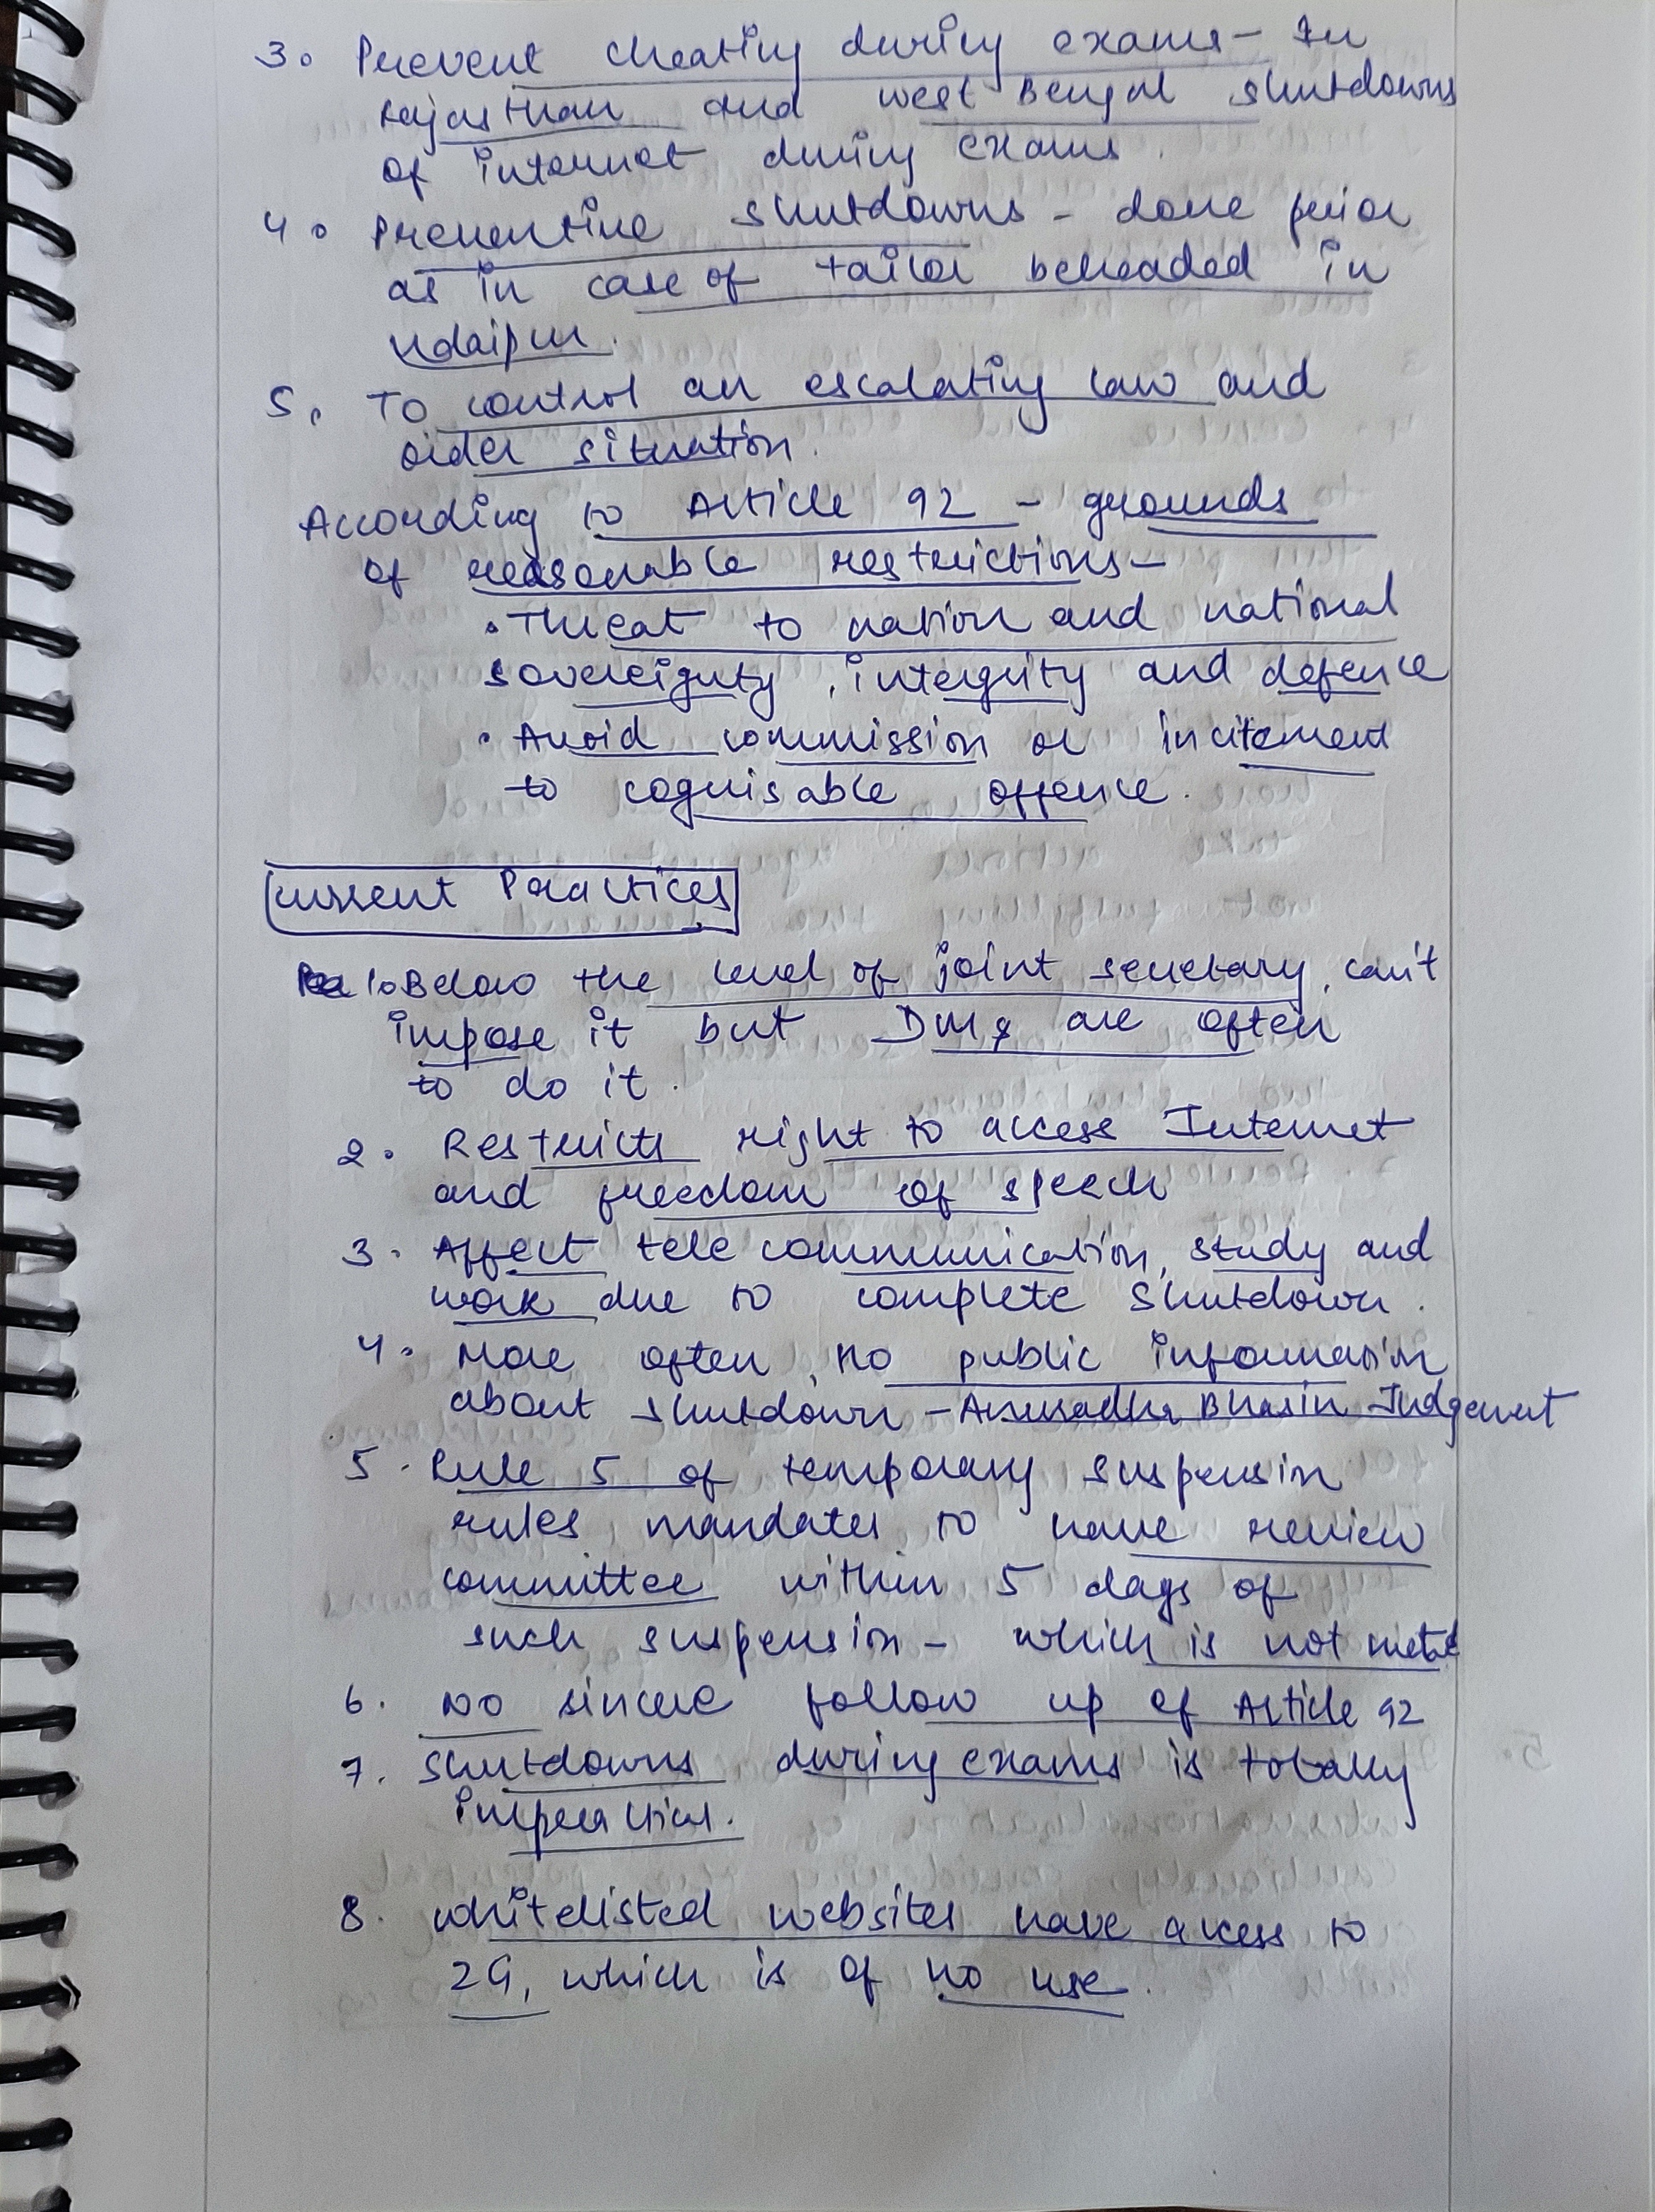 3. Prevent cheating during exams - In
rajasthan and west Bengal shutdowns
of internet during exams.
4. Preventive shutdowns - done prior
as in case of tailor beheaded in
Udaipur.
5. To control an escalating law and
order situation.
According to Article 92 - grounds
of reasonable restrictions -
• Threat to nation and national
sovereignty, intergrity and defence
• Avoid commission or incitement
to cognisable offence.
Current Practices
1. Below the level of joint secretary, can't
impose it but DMs are often
to do it.
2. Restricts right to access Internet
and freedom of speech
3. Affect tele communication, study and
work due to complete shutdown.
4. More often, no public information
about shutdown - Anuradha Bhasin Judgement
5. Rule 5 of temporary suspension
rules mandates to have review
committee within 5 days of
such suspension - which is not
6. No sincere follow up of Article 92
7. Shutdowns during exams is totally
impractical.
8. whitelisted websites have access to
2G, which is of no use.